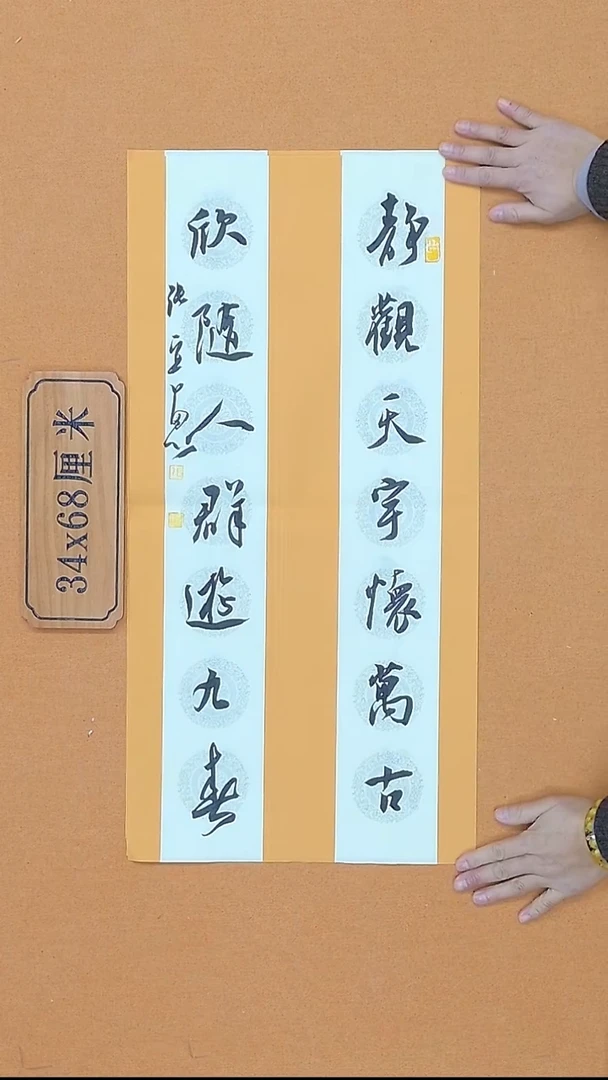 靜觀天宇懷萬古
欣隨人群遊九春
34x68厘米